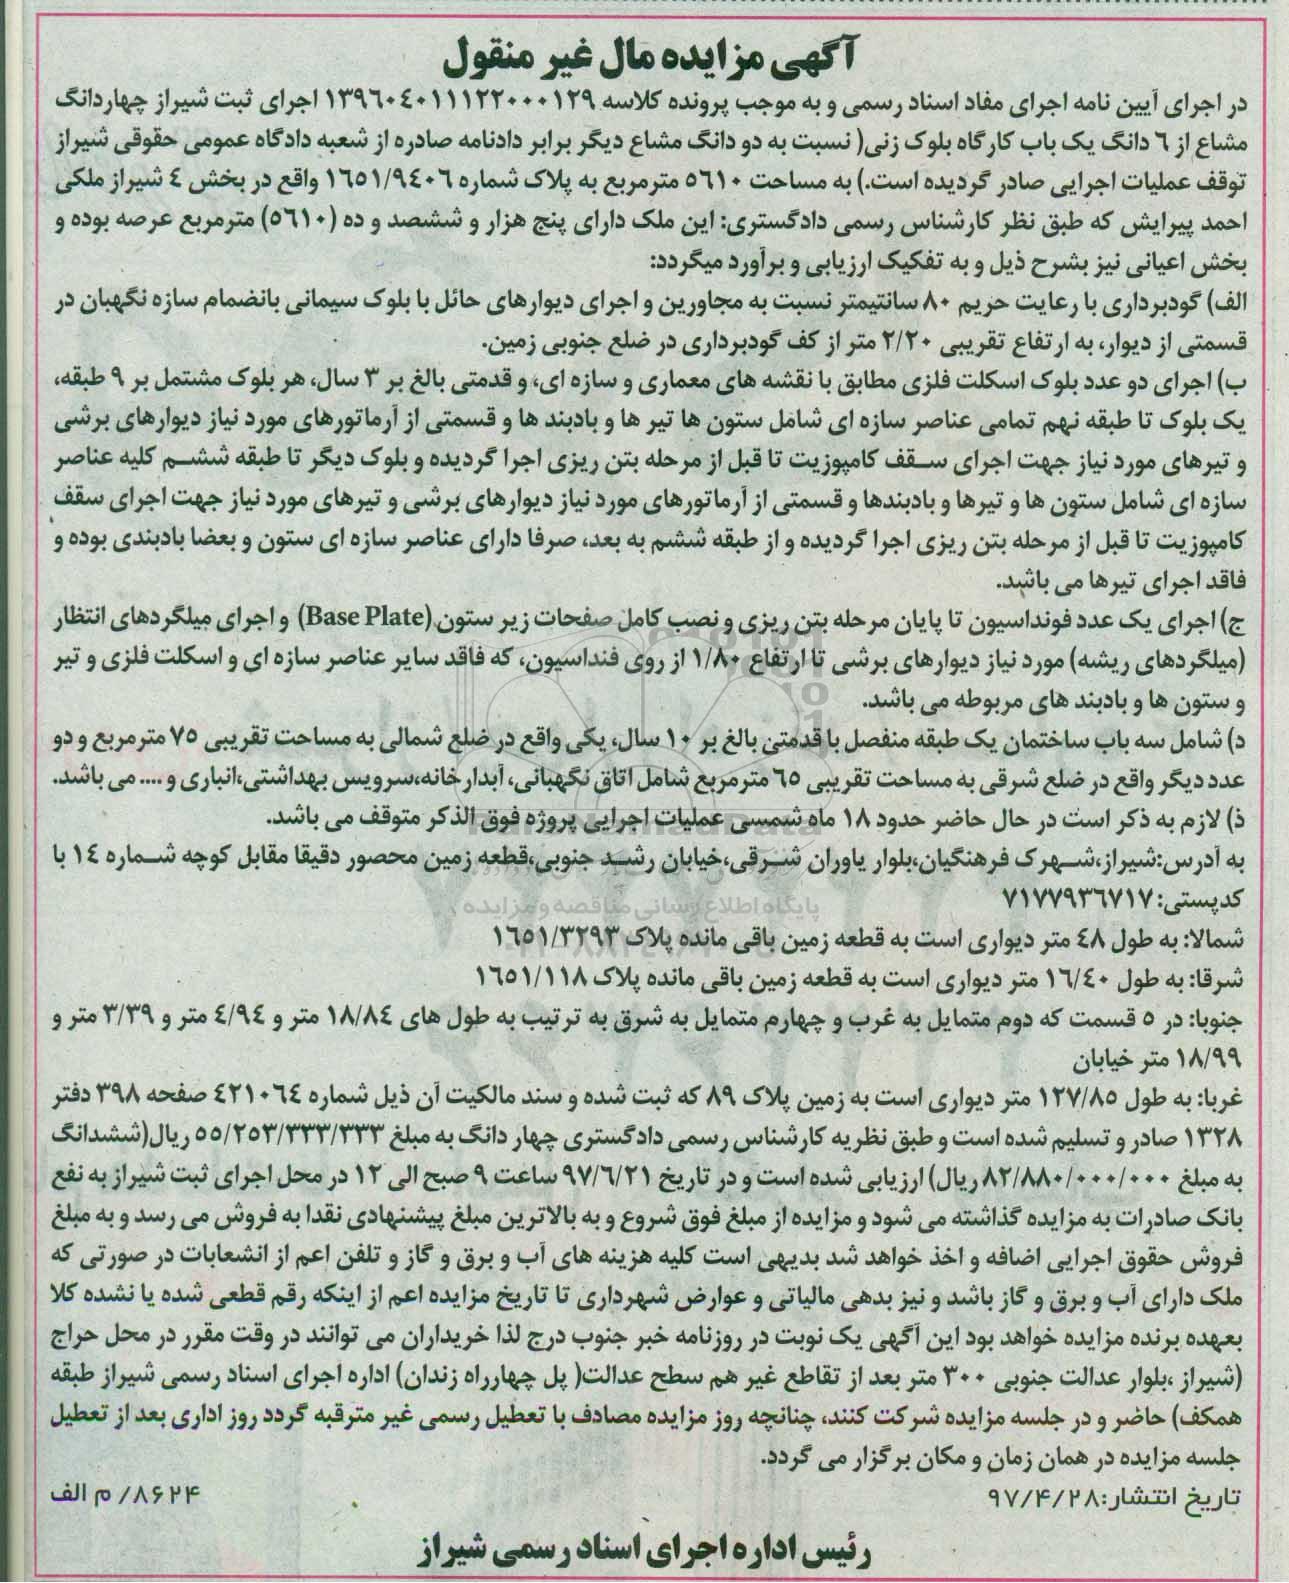 آگهی مزایده مال غیر منقول
در اجرای آیین نامه اجرای مفاد اسناد رسمی و به موجب پرونده کلاسه ۱۳۹۶۰۴۰۱۱۱۲۲۰۰۰۱۲۹ اجرای ثبت شیراز چهاردانگ
مشاع از ۶ دانگ یک باب کارگاه بلوک زنی( نسبت به دو دانگ مشاع دیگر برابر دادنامه صادره از شعبه دادگاه عمومی حقوقی شیراز
توقف عملیات اجرایی صادر گردیده است.) به مساحت ۵۶۱۰ مترمربع به پلاک شماره ۱۶۵۱/۹۴۰۶ واقع در بخش ۴ شیراز ملکی
احمد پیرایش که طبق نظر کارشناس رسمی دادگستری: این ملک دارای پنج هزار و ششصد و ده (۵۶۱۰) مترمربع عرصه بوده و
بخش اعیانی نیز بشرح ذیل و به تفکیک ارزیابی و برآورد میگردد:
الف) گودبرداری با رعایت حریم ۸۰ سانتیمتر نسبت به مجاورین و اجرای دیوارهای حائل با بلوک سیمانی بانضمام سازه نگهبان در
قسمتی از دیوار، به ارتفاع تقریبی ۲/۲۰ متر از کف گودبرداری در ضلع جنوبی زمین.
ب) اجرای دو عدد بلوک اسکلت فلزی مطابق با نقشه های معماری و سازه ای، و قدمتی بالغ بر ۳ سال، هر بلوک مشتمل بر ۹ طبقه،
یک بلوک تا طبقه نهم تمامی عناصر سازه ای شامل ستون ها تیر ها و بادبند ها و قسمتی از آرماتورهای مورد نیاز دیوارهای برشی
و تیرهای مورد نیاز جهت اجرای سقف کامپوزیت تا قبل از مرحله بتن ریزی اجرا گردیده و بلوک دیگر تا طبقه ششم کلیه عناصر
سازه ای شامل ستون ها و تیرها و بادبندها و قسمتی از آرماتورهای مورد نیاز دیوارهای برشی و تیرهای مورد نیاز جهت اجرای سقف
کامپوزیت تا قبل از مرحله بتن ریزی اجرا گردیده و از طبقه ششم به بعد، صرفا دارای عناصر سازه ای ستون و بعضا بادبندی بوده و
فاقد اجرای تیرها می باشد.
ج) اجرای یک عدد فونداسیون تا پایان مرحله بتن ریزی و نصب کامل صفحات زیر ستون (Base Plate) و اجرای میلگردهای انتظار
(میلگردهای ریشه) مورد نیاز دیوارهای برشی تا ارتفاع ۱/۸۰ از روی فنداسیون، که فاقد سایر عناصر سازه ای و اسکلت فلزی و تیر
و ستون ها و بادبند های مربوطه می باشد.
د) شامل سه باب ساختمان یک طبقه منفصل با قدمتی بالغ بر ۱۰ سال، یکی واقع در ضلع شمالی به مساحت تقریبی ۷۵ مترمربع و دو
عدد دیگر واقع در ضلع شرقی به مساحت تقریبی ۶۵ مترمربع شامل اتاق نگهبانی، آبدارخانه،سرویس بهداشتی،انباری و .... می باشد.
ذ) لازم به ذکر است در حال حاضر حدود ۱۸ ماه شمسی عملیات اجرایی پروژه فوق الذکر متوقف می باشد.
به آدرس:شیراز،شهرک فرهنگیان،بلوار یاوران شرقی،خیابان رشد جنوبی،قطعه زمین محصور دقیقا مقابل کوچه شماره ۱۴ با
کدپستی: ۷۱۷۷۹۳۶۷۱۷
پایگاه اطلاع رسانی مناقصه و مزایده
شمالا: به طول ۴۸ متر دیواری است به قطعه زمین باقی مانده پلاک ۱۶۵۱/۳۲۹۳
شرقا: به طول ۱۶/۴۰ متر دیواری است به قطعه زمین باقی مانده پلاک ۱۶۵۱/۱۱۸
جنوبا: در ۵ قسمت که دوم متمایل به غرب و چهارم متمایل به شرق به ترتیب به طول های ۱۸/۸۴ متر و ۴/۹۴ متر و ۳/۳۹ متر و
۱۸/۹۹ متر خیابان
غربا: به طول ۱۲۷/۸۵ متر دیواری است به زمین پلاک ۸۹ که ثبت شده و سند مالکیت آن ذیل شماره ۴۲۱۰۶۴ صفحه ۳۹۸ دفتر
۱۳۲۸ صادر و تسلیم شده است و طبق نظریه کارشناس رسمی دادگستری چهار دانگ به مبلغ ۵۵/۲۵۳/۳۳۳/۳۳۳ ریال(ششدانگ
به مبلغ ۸۲/۸۸۰/۰۰۰/۰۰۰ ریال) ارزیابی شده است و در تاریخ ۹۷/۶/۲۱ ساعت ۹ صبح الی ۱۲ در محل اجرای ثبت شیراز به نفع
بانک صادرات به مزایده گذاشته می شود و مزایده از مبلغ فوق شروع و به بالاترین مبلغ پیشنهادی نقدا به فروش می رسد و به مبلغ
فروش حقوق اجرایی اضافه و اخذ خواهد شد بدیهی است کلیه هزینه های آب و برق و گاز و تلفن اعم از انشعابات در صورتی که
ملک دارای آب و برق و گاز باشد و نیز بدهی مالیاتی و عوارض شهرداری تا تاریخ مزایده اعم از اینکه رقم قطعی شده یا نشده کلا
بعهده برنده مزایده خواهد بود این آگهی یک نوبت در روزنامه خبر جنوب درج لذا خریداران می توانند در وقت مقرر در محل حراج
(شیراز ،بلوار عدالت جنوبی ۳۰۰ متر بعد از تقاطع غیر هم سطح عدالت( پل چهارراه زندان) اداره اجرای اسناد رسمی شیراز طبقه
همکف) حاضر و در جلسه مزایده شرکت کنند، چنانچه روز مزایده مصادف با تعطیل رسمی غیر مترقبه گردد روز اداری بعد از تعطیل
جلسه مزایده در همان زمان و مکان برگزار می گردد.
تاریخ انتشار:۹۷/۴/۲۸
۸۶۲۴/ م الف
رئیس اداره اجرای اسناد رسمی شیراز